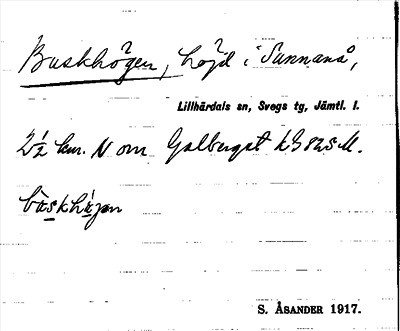 Buskhögen, höjd i Sunnanå,
Lillhärdals sn, Svegs tg, Jämtl. l.
2½ km. N om Galberget k3 82 s M.
S. ÅSANDER 1917.